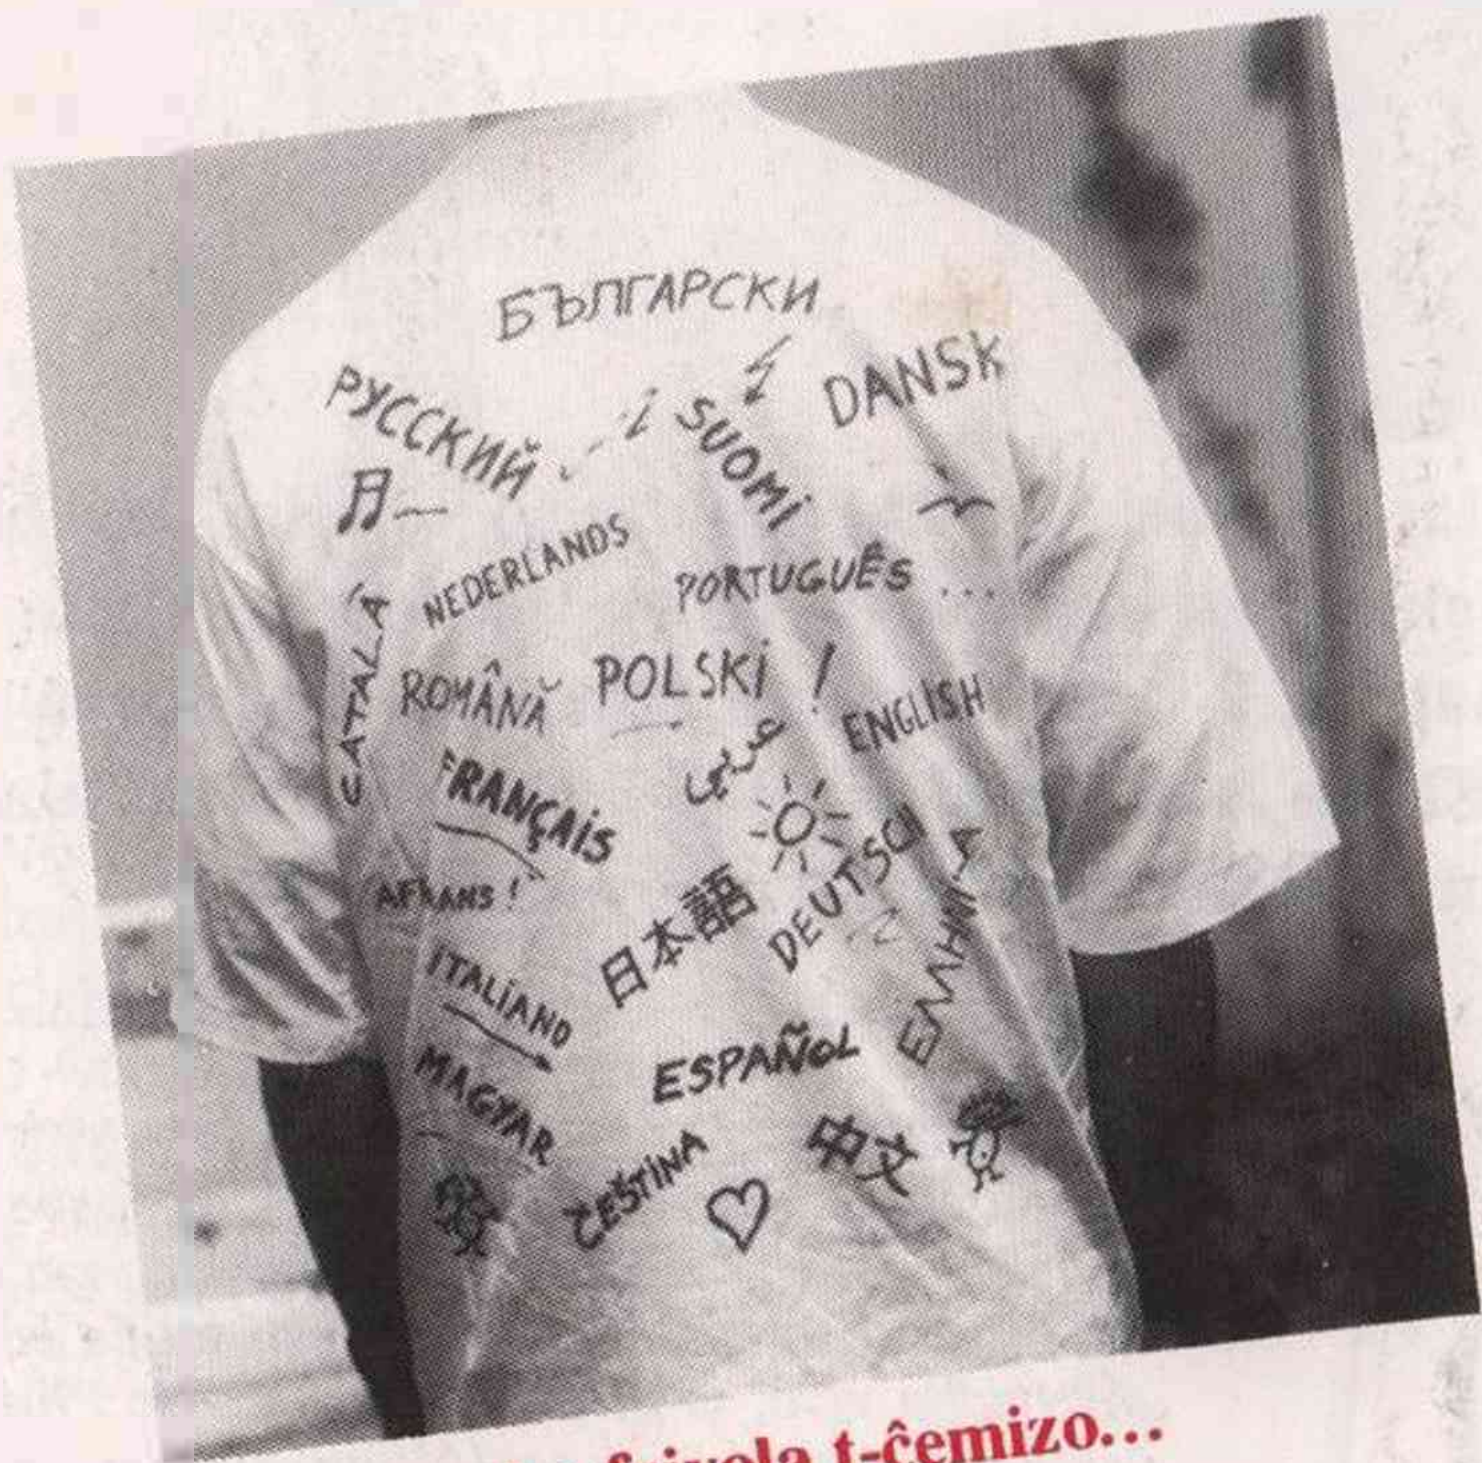 БЪЛГАРСКИ
РУССКИЙ
SUOMI
DANSK
NEDERLANDS
PORTUGUÊS ...
CATALÀ
ROMÂNĂ
POLSKI !
ENGLISH
عربي
FRANÇAIS
AFRANS !
日本語
DEUTSCH
ΕΛΛΗΝΙΚΑ
ITALIANO
ESPAÑOL
MAGYAR
ČEŠTINA
中文
frivola t-ĉemizo...